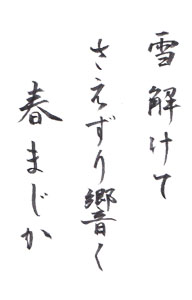 雪解けて
さえずり響く
春まじか